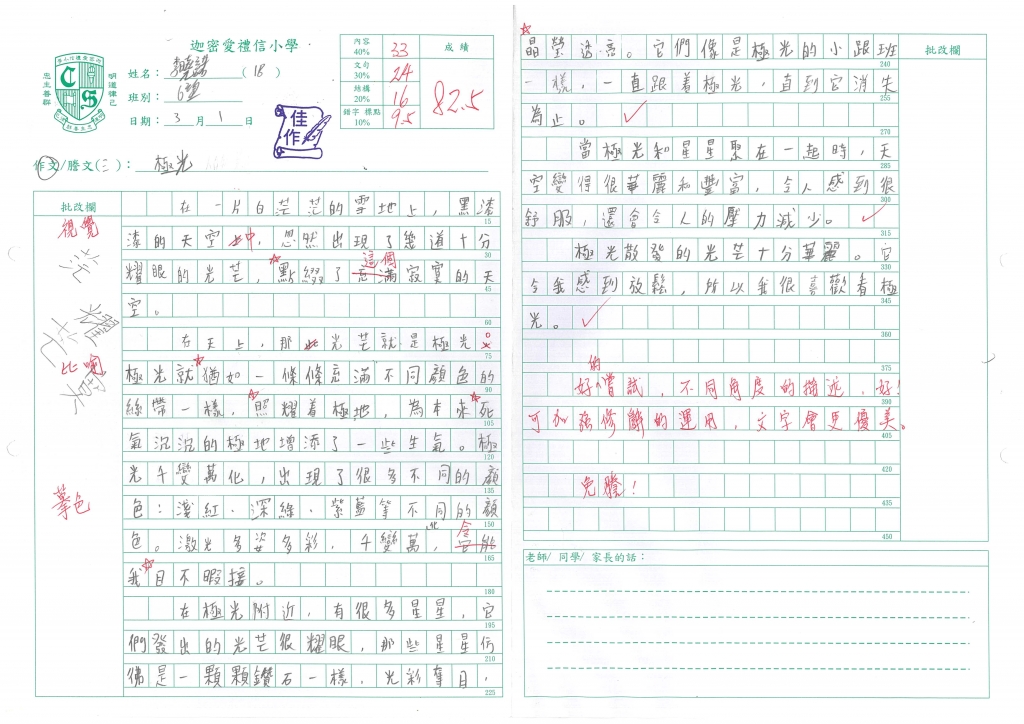 迦密愛禮信小學
忠主善群
明道律己
姓名：（18）
班別：6
日期：3月1日
內容 40% 33
文句 30% 24
結構 20% 16
錯字 標點 10% 9.5
成績
82.5
佳作
作文/謄文(三)：極光
批改欄
在一片白茫茫的雪地上，黑漆
15
視覺
漆的天空中，忽然出現了幾道十分
30
茫
這個
耀眼的光芒，點綴了充滿寂寞的天
45
耀
空。
60
芒
在天上，那些光芒就是極光。
75
比喻
極光就猶如一條條充滿不同顏色的
90
寞
絲帶一樣，照耀着極地，為本來死
105
氣沉沉的極地增添了一些生氣。極
120
光千變萬化，出現了很多不同的顏
135
摹色
色：淺紅、深綠、紫藍等不同的顏
150
化
令
色。激光多姿多彩，千變萬，
165
我目不暇接。
180
在極光附近，有很多星星，它
195
們發出的光芒很耀眼，那些星星彷
210
彿是一顆顆鑽石一樣，光彩奪目，
225
批改欄
晶瑩透亮。它們像是極光的小跟班
240
一樣，一直跟着極光，直到它消失
255
為止。
270
當極光和星星聚在一起時，天
285
空變得很華麗和豐富，令人感到很
300
舒服，還會令人的壓力減少。
315
極光散發的光芒十分華麗。它
330
令我感到放鬆，所以我很喜歡看極
345
光。
360
375
好的嘗試，不同角度的描述，好！
390
可加強修辭的運用，文字會更優美。
405
420
免謄！
435
450
老師/ 同學/ 家長的話：